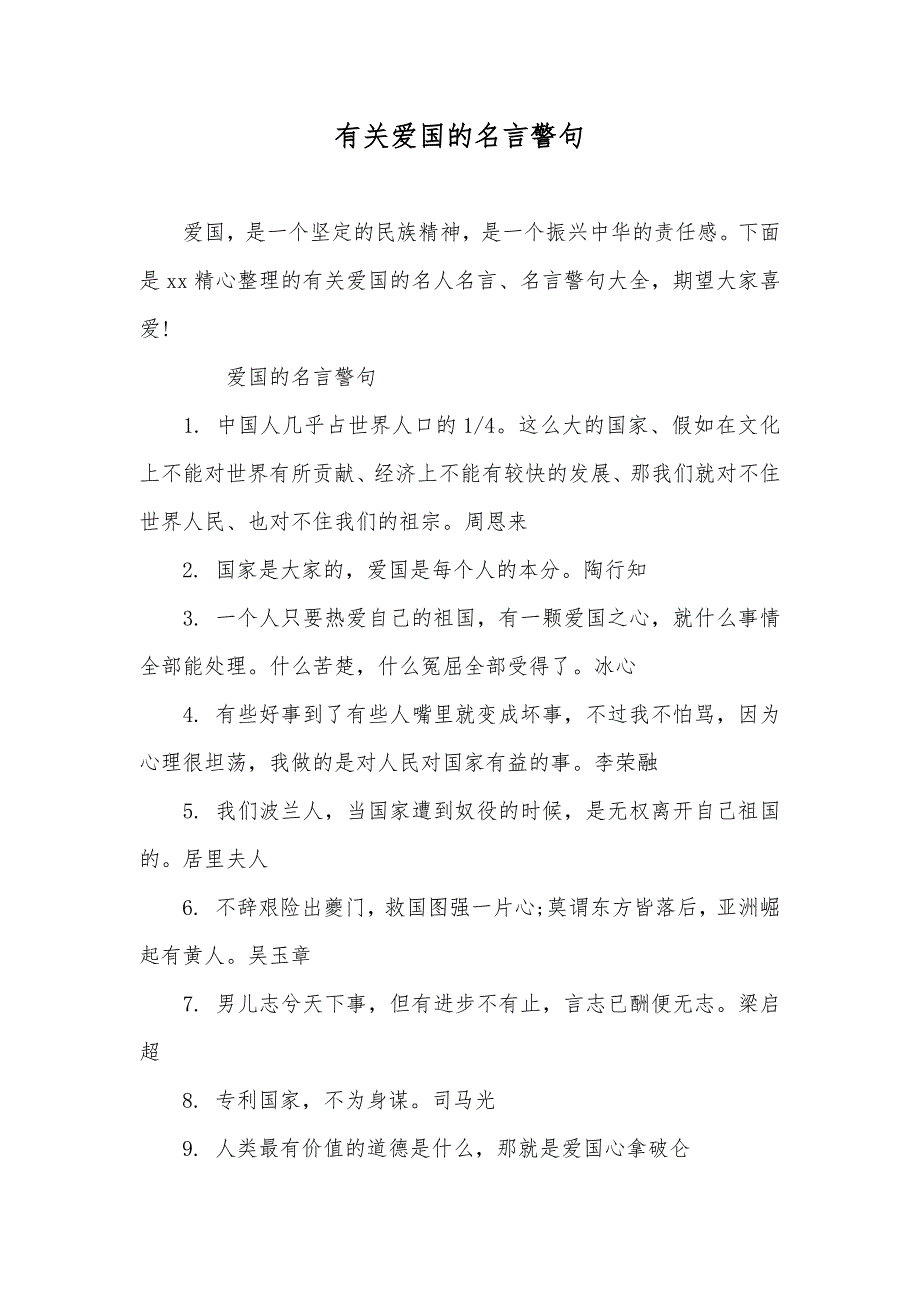 有关爱国的名言警句
爱国，是一个坚定的民族精神，是一个振兴中华的责任感。下面
是 xx 精心整理的有关爱国的名人名言、名言警句大全，期望大家喜
爱!
爱国的名言警句
1. 中国人几乎占世界人口的 1/4。这么大的国家、假如在文化
上不能对世界有所贡献、经济上不能有较快的发展、那我们就对不住
世界人民、也对不住我们的祖宗。周恩来
2. 国家是大家的，爱国是每个人的本分。陶行知
3. 一个人只要热爱自己的祖国，有一颗爱国之心，就什么事情
全部能处理。什么苦楚，什么冤屈全部受得了。冰心
4. 有些好事到了有些人嘴里就变成坏事，不过我不怕骂，因为
心理很坦荡，我做的是对人民对国家有益的事。李荣融
5. 我们波兰人，当国家遭到奴役的时候，是无权离开自己祖国
的。居里夫人
6. 不辞艰险出夔门，救国图强一片心;莫谓东方皆落后，亚洲崛
起有黄人。吴玉章
7. 男儿志兮天下事，但有进步不有止，言志已酬便无志。梁启
超
8. 专利国家，不为身谋。司马光
9. 人类最有价值的道德是什么，那就是爱国心拿破仑